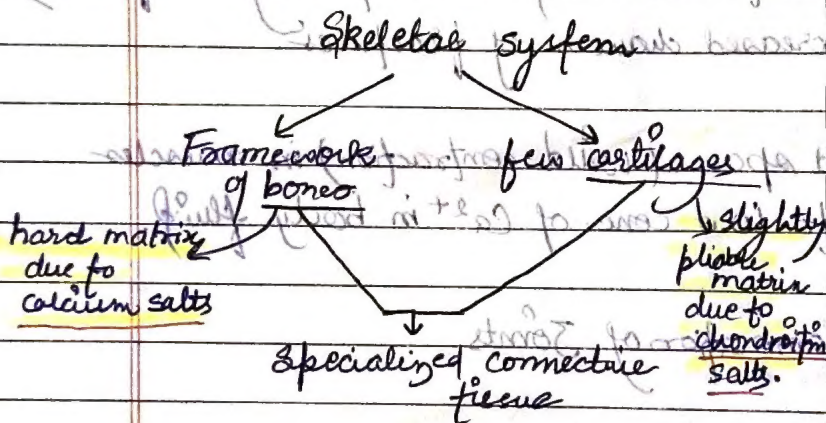 Skeletal system
Framework
of bones
few cartilages
hard matrix
due to
calcium salts
slightly
pliable
matrix
due to
chondroitin
salts.
Specialized connective
tissue